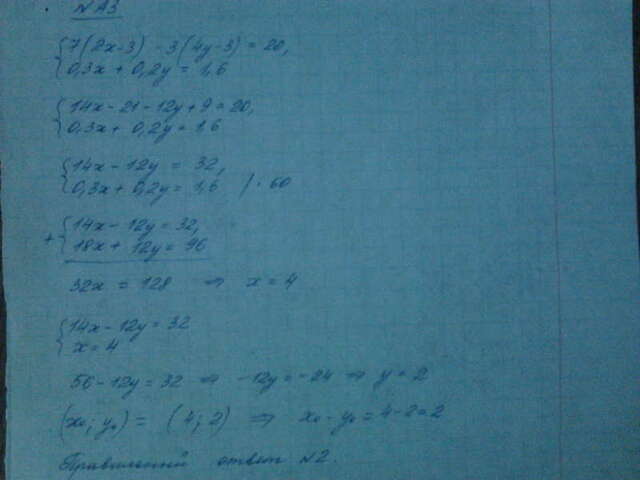 № А3
{7(2x-3) - 3(4y-3) = 20,
{0,3x + 0,2y = 1,6
{14x - 21 - 12y + 9 = 20,
{0,3x + 0,2y = 1,6
{14x - 12y = 32,
{0,3x + 0,2y = 1,6 / · 60
+ {14x - 12y = 32,
{18x + 12y = 96
32x = 128 ⇒ x = 4
{14x - 12y = 32
{x = 4
56 - 12y = 32 ⇒ -12y = -24 ⇒ y = 2
(x₀; y₀) = (4; 2) ⇒ x₀ - y₀ = 4-2=2
Правильный ответ №2.